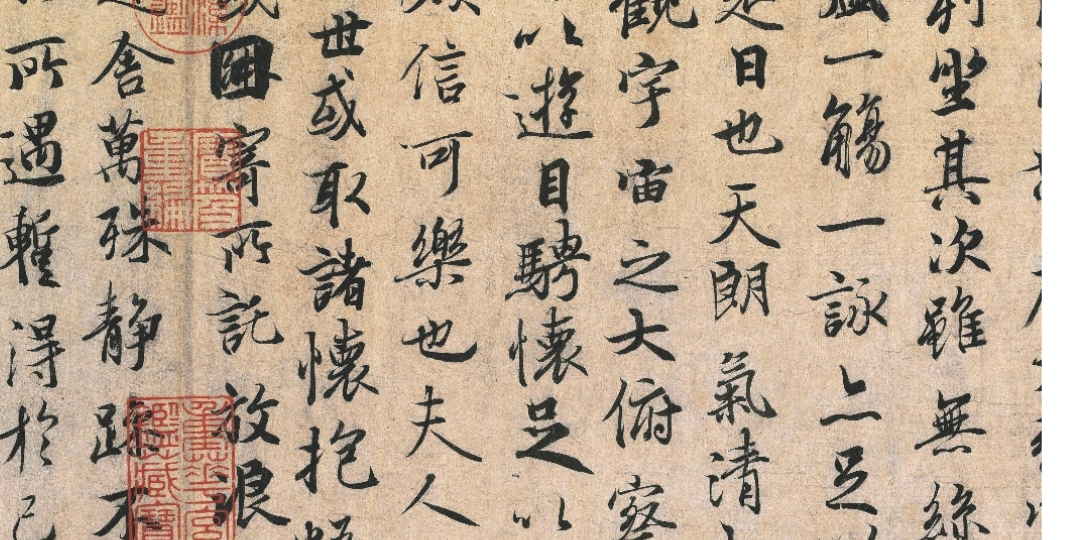 列坐其次雖無絲
盛一觴一詠亦足以
是日也天朗氣清
觀宇宙之大俯察
以遊目騁懷足以
娛信可樂也夫人
世或取諸懷抱悟
或因寄所託放浪
舍萬殊靜躁不
所遇暫得於己